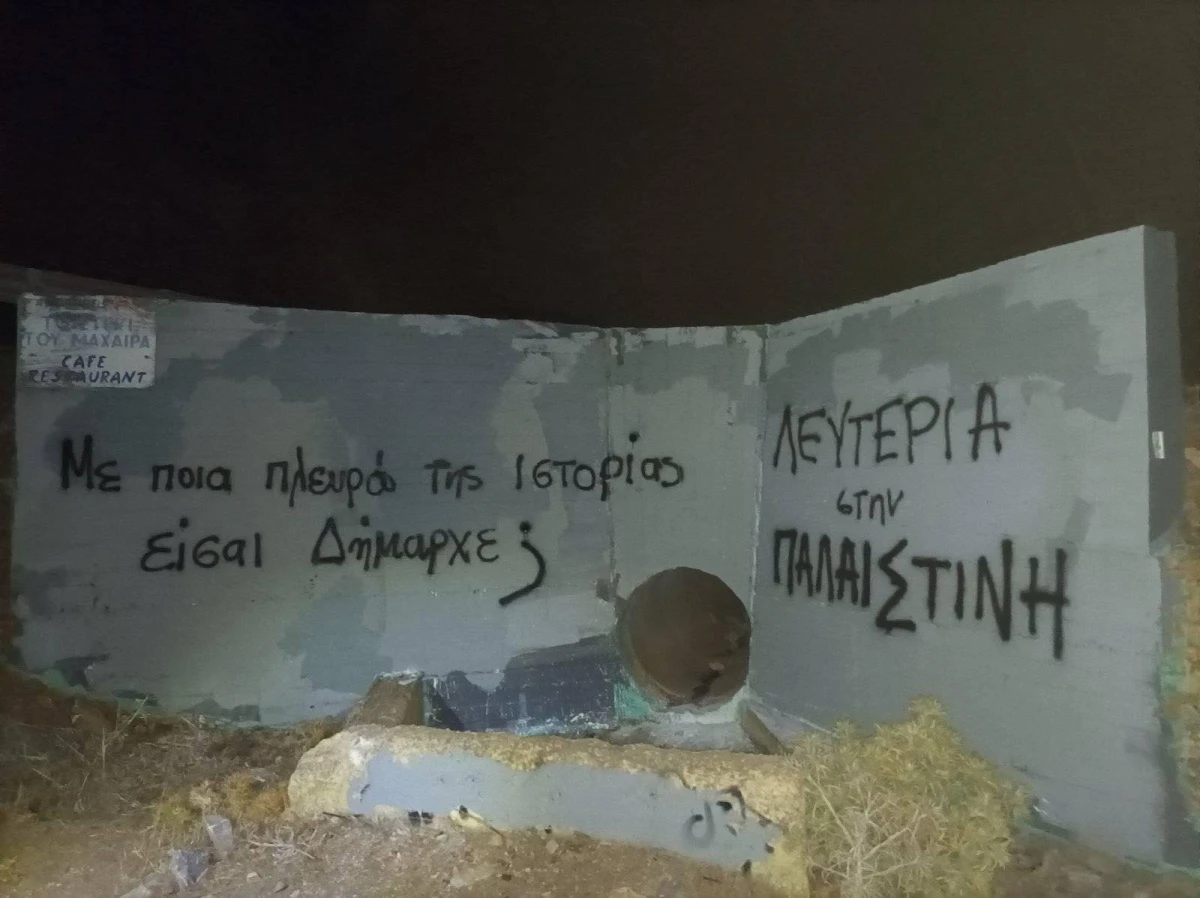 ΤΟΥ ΜΑΧΑΙΡΑ
CAFE
RESTAURANT
Με ποια πλευρά της ιστορίας
είσαι Δήμαρχε;
ΛΕΥΤΕΡΙΑ
στην
ΠΑΛΑΙΣΤΙΝΗ